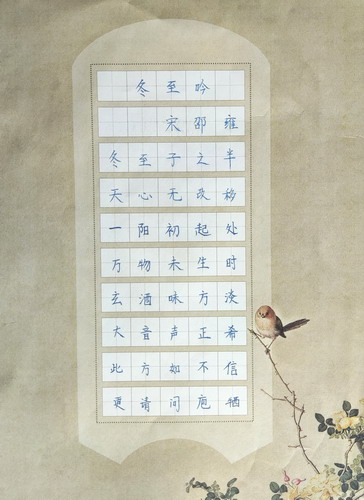 冬至吟
宋邵雍
冬至子之半
天心无改移
一阳初起处
万物未生时
玄酒味方淡
大音声正希
此方如不信
更请问庖牺